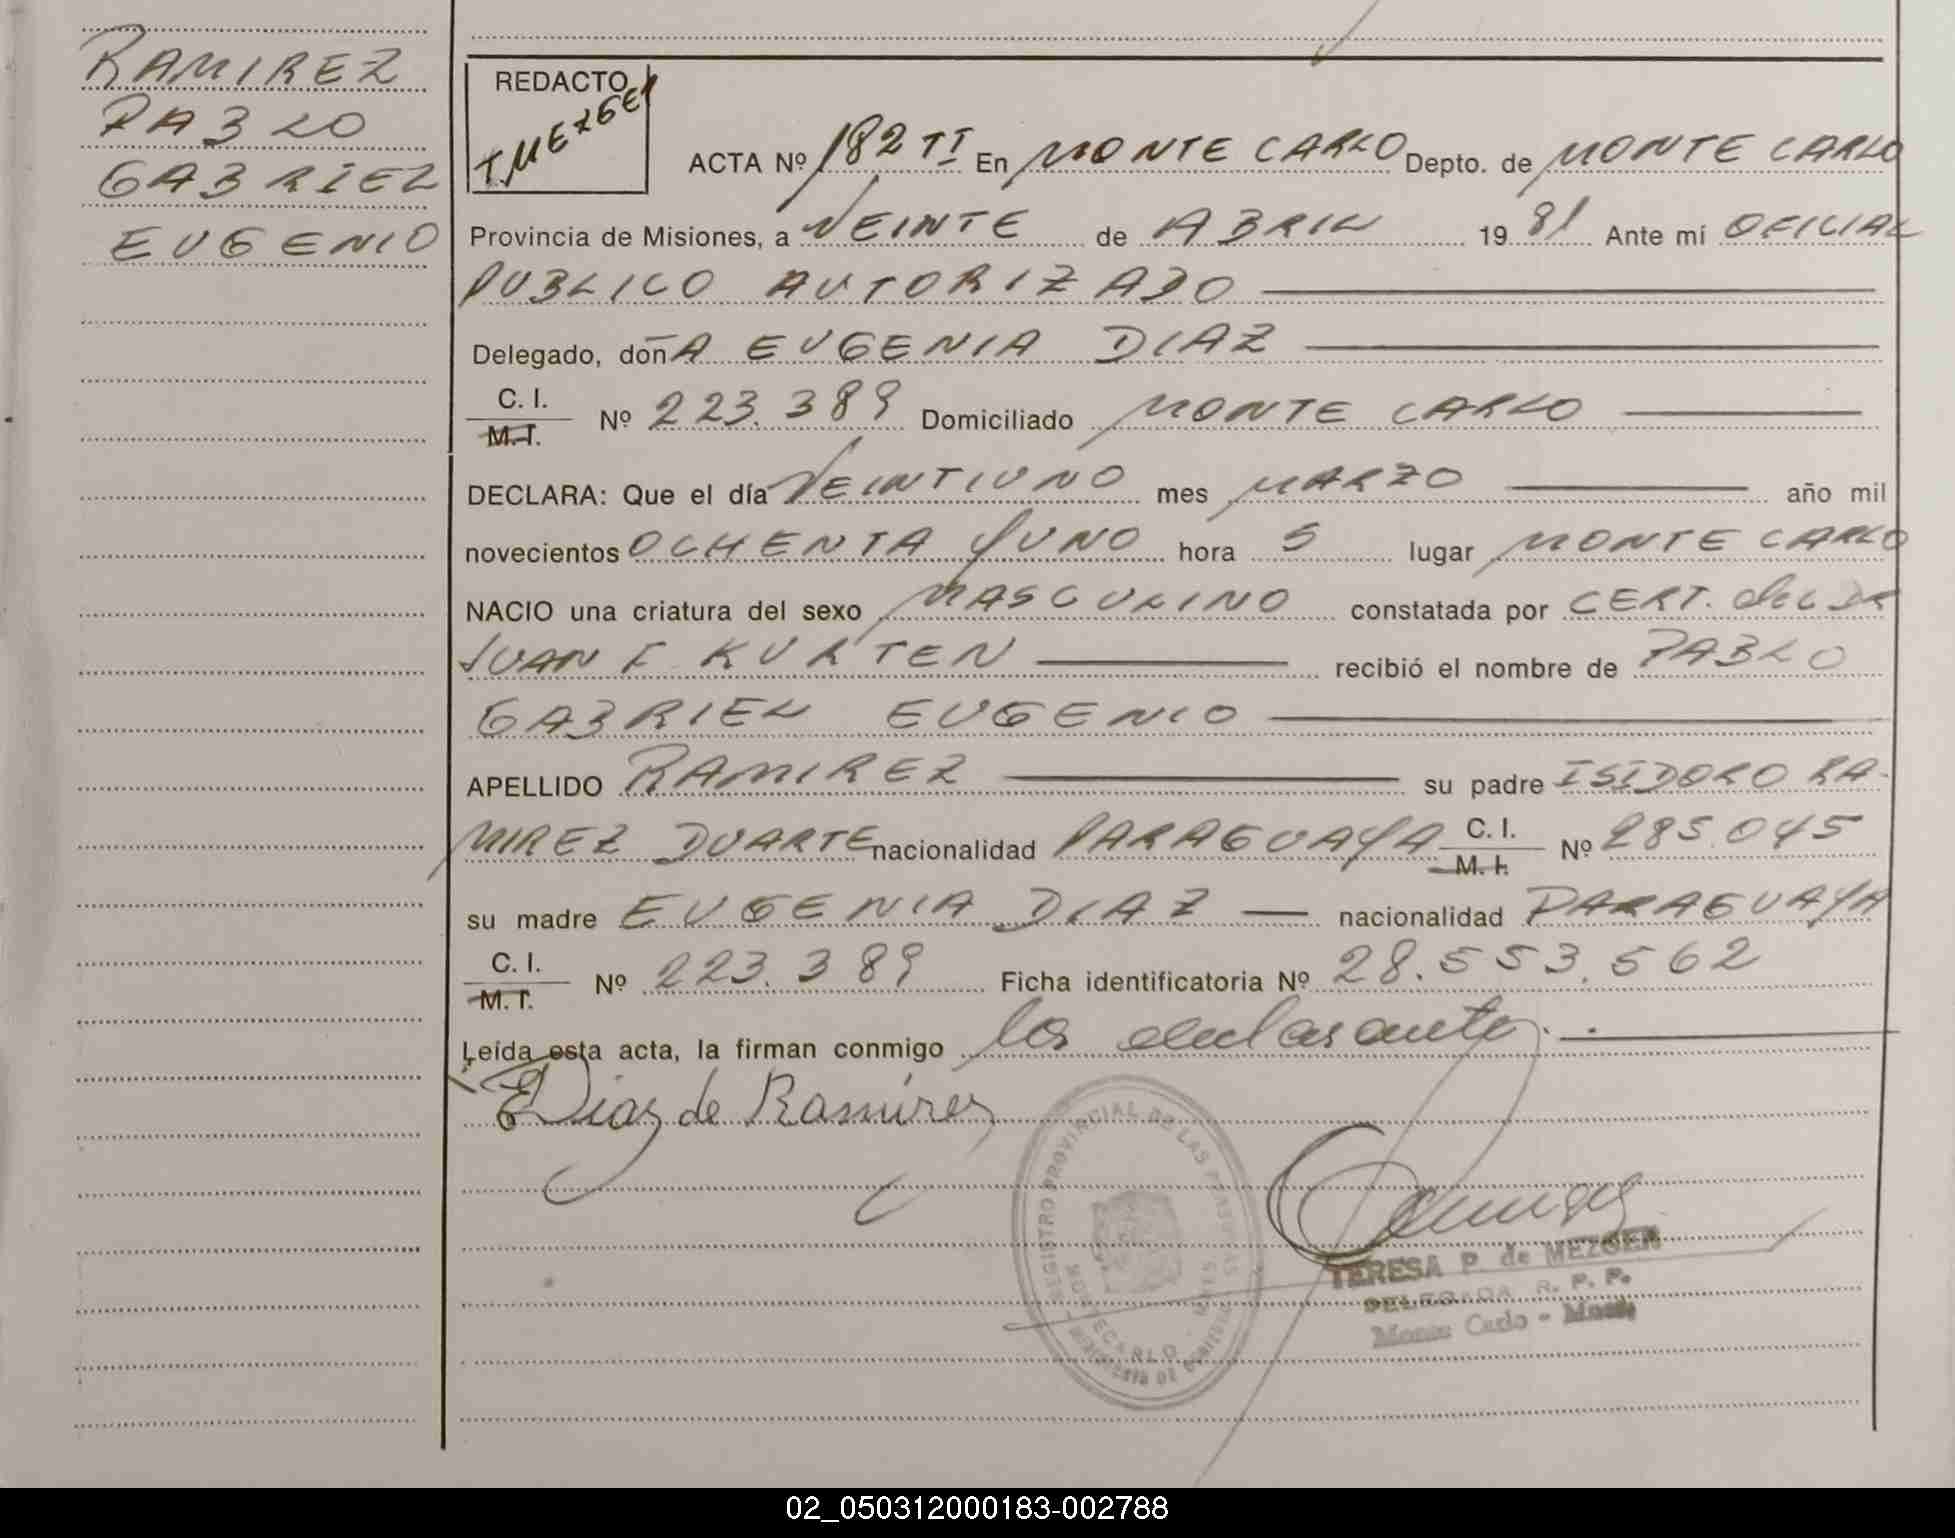 RAMIREZ
PABLO
GABRIEL
EUGENIO
REDACTO
T.MEZGER
ACTA Nº 182 TI En MONTE CARLO Depto. de MONTE CARLO
Provincia de Misiones, a VEINTE de ABRIL 19 81 Ante mí OFICIAL
PUBLICO AUTORIZADO
Delegado, doñA EUGENIA DIAZ
C. I.
M. I. Nº 223.389 Domiciliado MONTE CARLO
DECLARA: Que el día VEINTIUNO mes MARZO año mil
novecientos OCHENTA YUNO hora 5 lugar MONTE CARLO
NACIO una criatura del sexo MASCULINO constatada por CERT. del DR
JUAN F KURTEN recibió el nombre de PABLO
GABRIEL EUGENIO
APELLIDO RAMIREZ su padre ISIDORO RA-
MIREZ DUARTE nacionalidad PARAGUAYA C. I. M. I. Nº 285.045
su madre EUGENIA DIAZ nacionalidad PARAGUAYA
C. I.
M. I. Nº 223.389 Ficha identificatoria Nº 28.553.562
Leída esta acta, la firman conmigo los declarante
EDiaz de Ramírez
REGISTRO PROVINCIAL DE LAS PERSONAS
MONTECARLO
TERESA P. de MEZGER
DELEGADA R. P. P.
Monte Carlo - Mnes
02_050312000183-002788